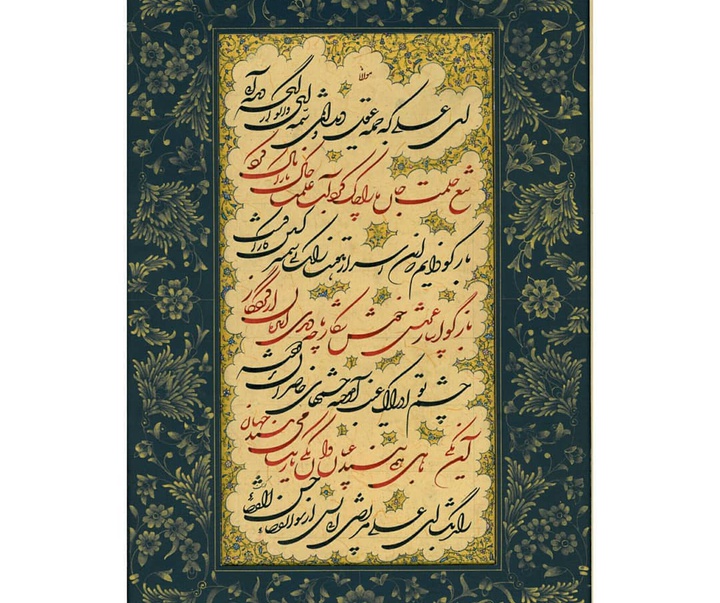 مولانا
ای علی که جمله عقل و دیده‌ای شمه‌ای واگو از آنچه دیده‌ای
تیغ حلمت جان ما را چاک کرد آب علمت خاک ما را پاک کرد
بازگو دانم که این اسرار هوست زانک بی شمشیر کشتن کار اوست
بازگو ای باز عرش خوش شکار تا چه دیدی این زمان از کردگار
چشم تو ادراک غیب آموخته چشمهای حاضران بر دوخته
آن یکی ماهی همی بیند عیان وان یکی تاریک می بیند جهان
راز بگشا ای علی مرتضی ای پس از سوء القضا حسن القضا